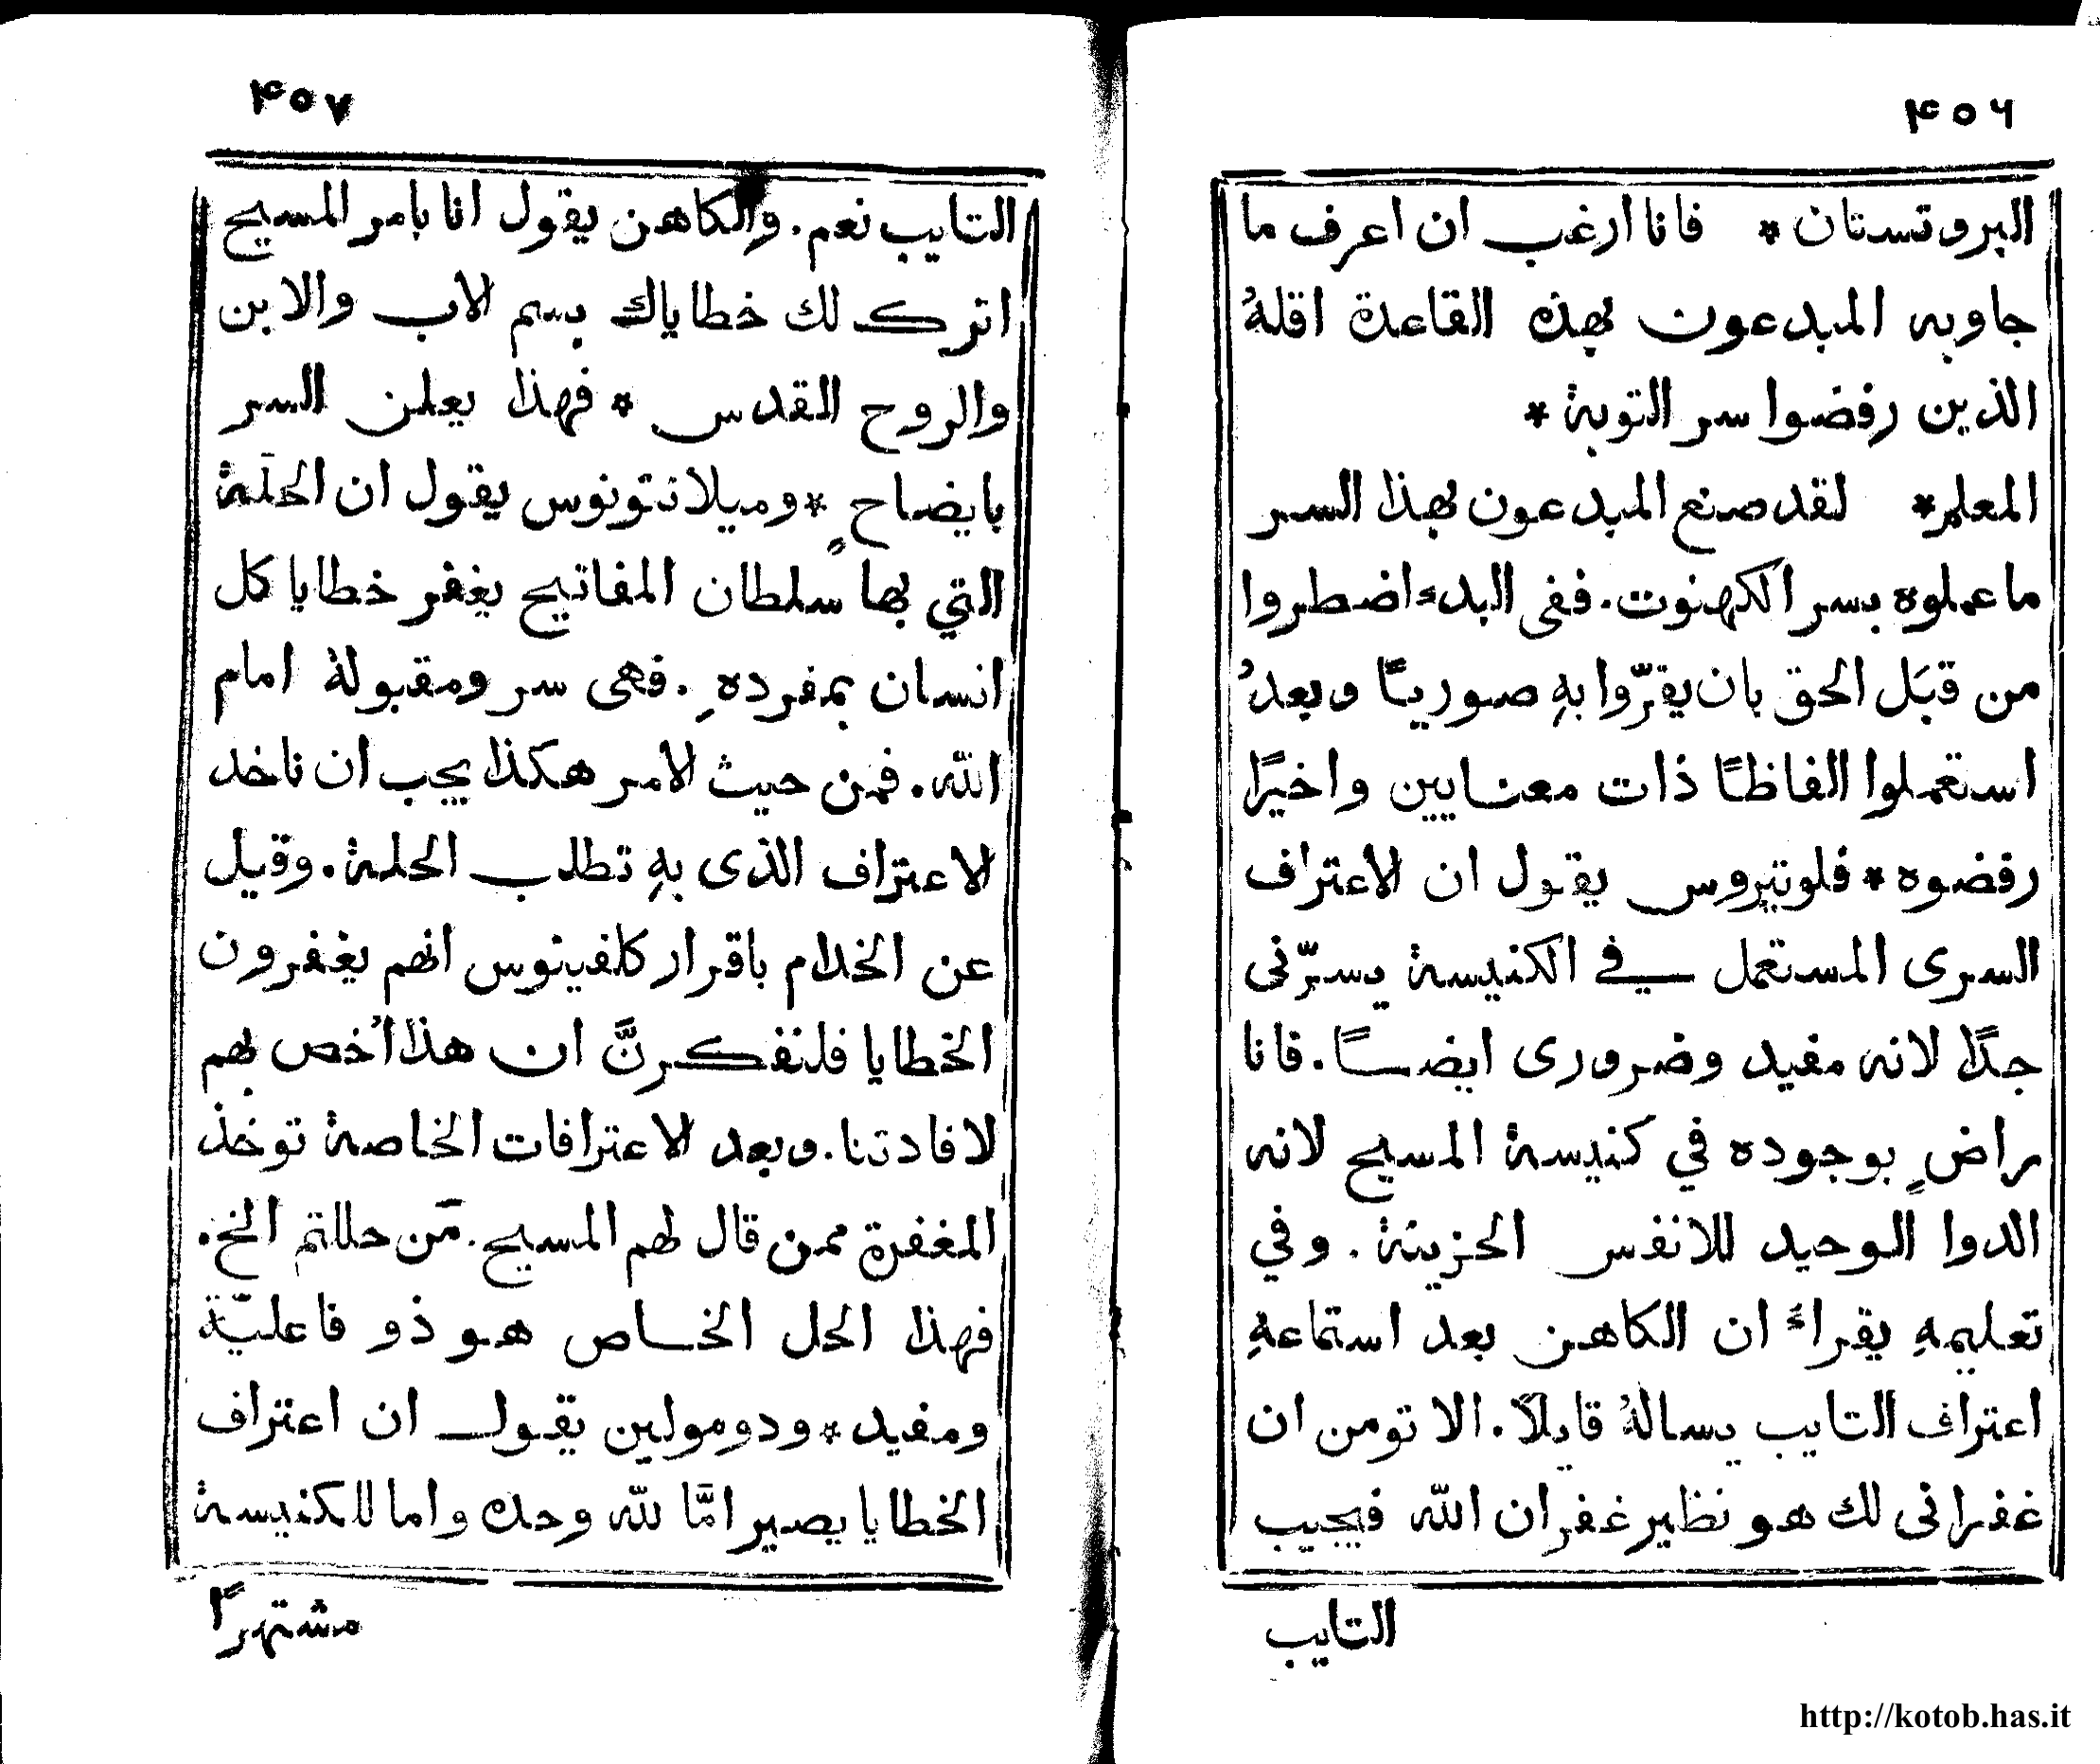 ٤٥٦
البروتستان * فانا ارغب ان اعرف ما
جاوبه المبدعون بهذه القاعدة اقلهُ
الذين رفضوا سر التوبة *
المعلم * لقد صنع المبدعون بهذا السر
ما عملوه بسر الكهنوت. ففى البدء اضطروا
من قبَل الحق بان يقرّوا بهِ صوريًا وبعدهُ
استعملوا الفاظًا ذات معنايين واخيرًا
رفضوه * فلوتيروس يقول ان الاعتراف
السرى المستعمل في الكنيسة يسرّنى
جدًا لانه مفيد وضرورى ايضًا. فانا
راضٍ بوجوده في كنيسة المسيح لانه
الدوا الوحيد للانفس الحزينة. وفي
تعليمهِ يقراءُ ان الكاهن بعد استماعهِ
اعتراف التايب يسالهُ قايلًا. الا تومن ان
غفرانى لك هو نظير غفران الله فيجيب
التايب
٤٥٧
التايب نعم. والكاهن يقول انا بامر المسيح
اترك لك خطاياك بسم الاب والابن
والروح القدس * فهذا يعلن السر
بايضاحٍ * وميلانتونوس يقول ان الحلّة
التي بها سلطان المفاتيح يغفر خطايا كل
انسان بمفردهِ. فهى سر ومقبولة امام
الله. فمن حيث الامر هكذا يجب ان ناخد
الاعتراف الذى بهِ تطلب الحلة. وقيل
عن الخدام باقرار كلفينوس انهم يغفرون
الخطايا فلنفكرنَّ ان هذا اُخص بهم
لافادتنا. وبعد الاعترافات الخاصة توخذ
المغفرة ممن قال لهم المسيح. مَن حللتم الخ.
فهذا الحل الخاص هو ذو فاعليّة
ومفيد * ودومولين يقول ان اعتراف
الخطايا يصير امَّا لله وحده واما للكنيسة
مشتهرًا
http://kotob.has.it